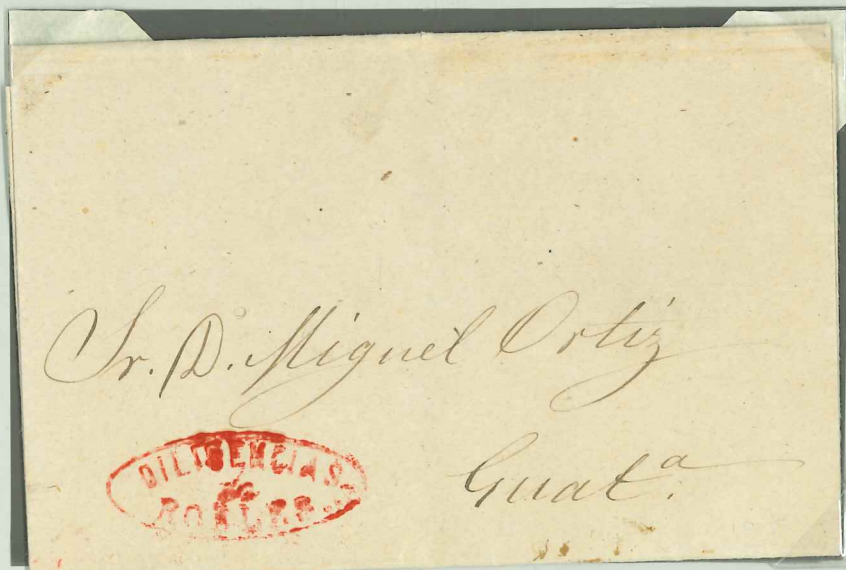 Sr. D. Miguel Ortiz
Guat.ª
DILIGENCIAS
de
ROBLES.